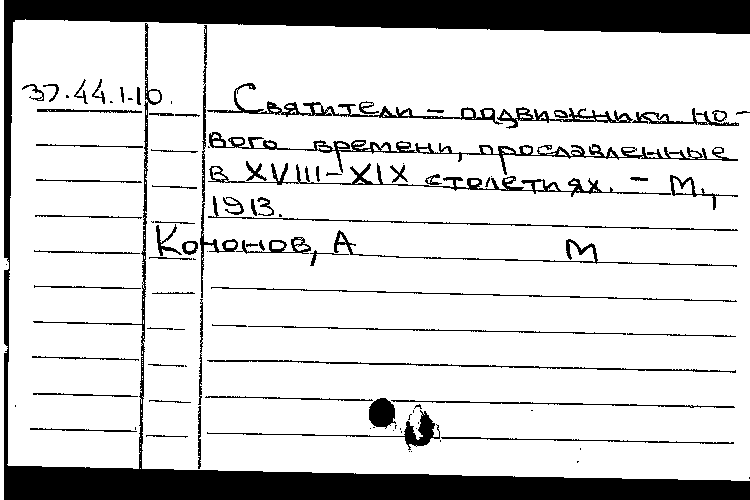 37.44.1-10. Святители - подвижники но-
вого времени, прославленные
в XVIII-XIX столетиях. - М.,
1913.
Кононов, А М